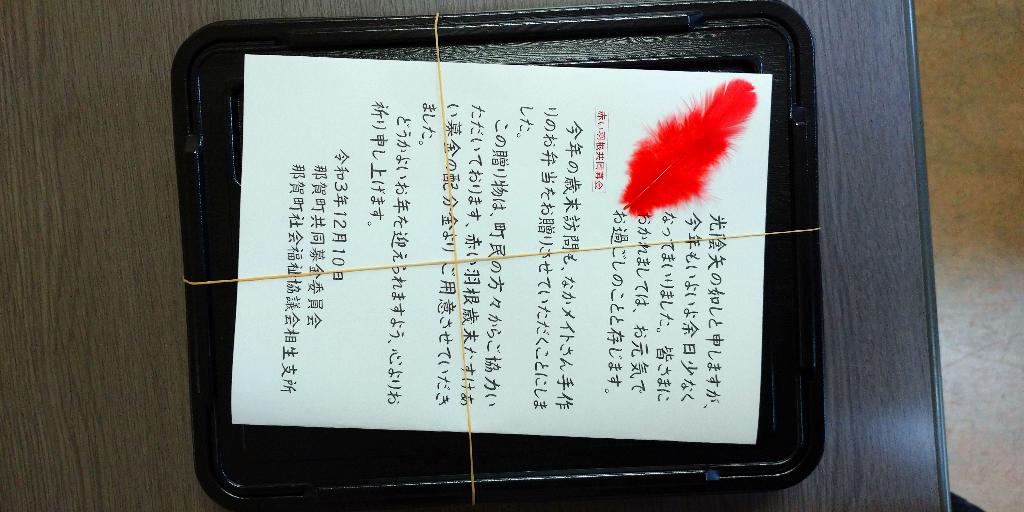 赤い羽根共同募金
光陰矢の如しと申しますが、
今年もいよいよ余日少なく
なってまいりました。皆さまに
おかれましては、お元気で
お過ごしのことと存じます。
今年の歳末訪問も、なかメイトさん手作
りのお弁当をお贈りさせていただくことにしま
した。
この贈り物は、町民の方々からご協力い
ただいております、赤い羽根歳末たすけあ
い募金の配分金よりご用意させていただき
ました。
どうかよいお年を迎えられますよう、心よりお
祈り申し上げます。
令和3年12月10日
那賀町共同募金委員会
那賀町社会福祉協議会相生支所